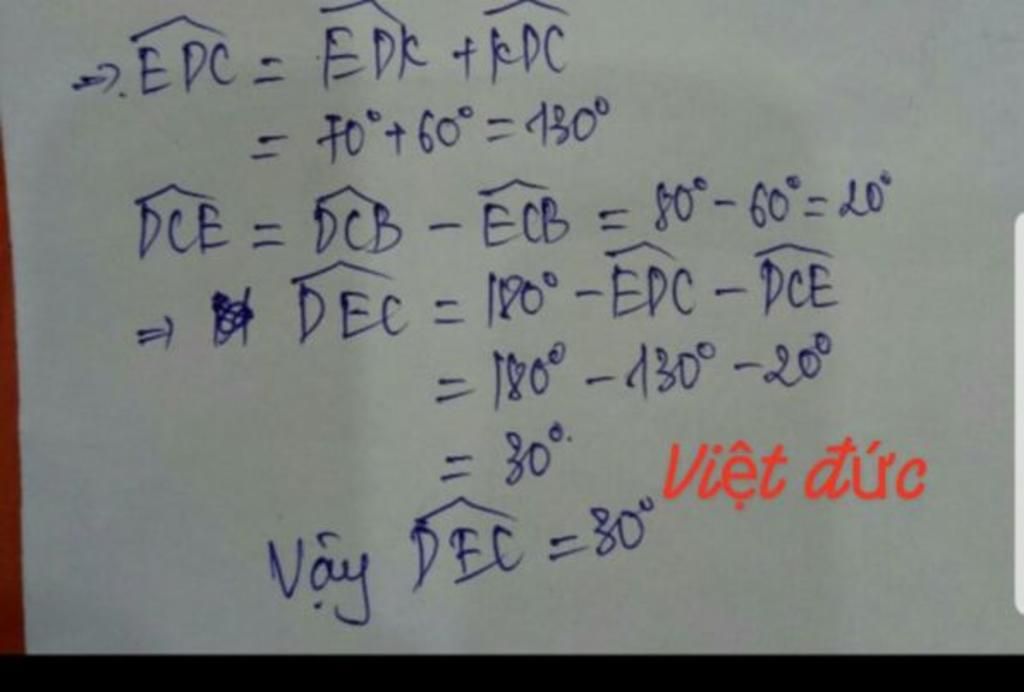 ⇒ \widehat{EDC} = \widehat{EDK} + \widehat{KDC}
= 70° + 60° = 130°
\widehat{DCE} = \widehat{DCB} - \widehat{ECB} = 80° - 60° = 20°
⇒ \widehat{DEC} = 180° - \widehat{EDC} - \widehat{DCE}
= 180° - 130° - 20°
= 30°.
Việt đức
Vậy \widehat{DEC} = 30°